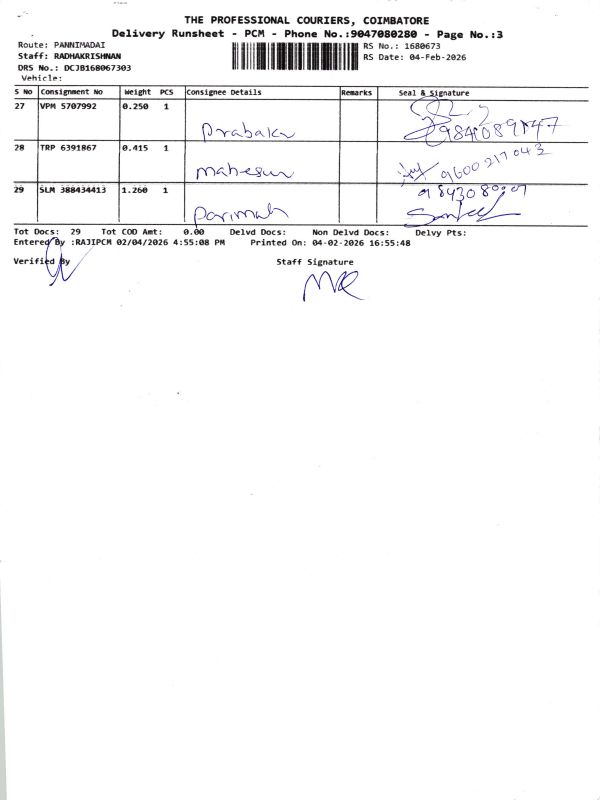 THE PROFESSIONAL COURIERS, COIMBATORE
Delivery Runsheet - PCM - Phone No.:9047080280 - Page No.:3
Route: PANNIMADAI
RS No.: 1680673
Staff: RADHAKRISHNAN
RS Date: 04-Feb-2026
DRS No.: DCJB168067303
Vehicle:
S No Consignment No Weight PCS Consignee Details Remarks Seal & Signature
27 VPM 5707992 0.250 1
Prabaka
28 TRP 6391867 0.415 1
Mahesu 9600217043
29 SLM 388434413 1.260 1
Parimah
Tot Docs: 29 Tot COD Amt: 0.00 Delvd Docs: Non Delvd Docs: Delvy Pts:
Entered By :RAJIPCM 02/04/2026 4:55:08 PM Printed On: 04-02-2026 16:55:48
Verified By Staff Signature